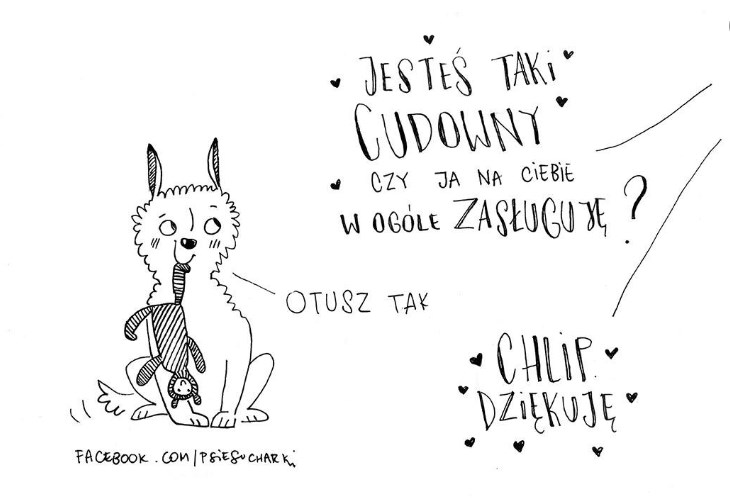 JESTEŚ TAKI
CUDOWNY
CZY JA NA CIEBIE
W OGÓLE ZASŁUGUJĘ?
OTUSZ TAK
CHLIP.
DZIĘKUJĘ
FACEBOOK.COM/PSIESUCHARKI